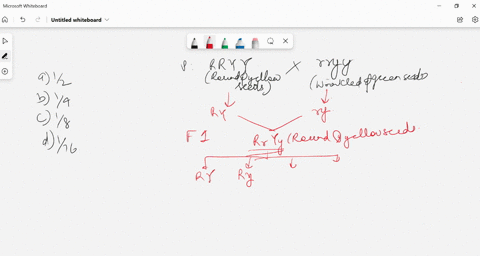 Microsoft Whiteboard
Untitled whiteboard
P: RRYY × rryy
(Round yellow seeds) (Wrinkled green seeds)
a) 1/2
b) 1/4
c) 1/8
d) 1/16
RY ry
F1 RrYy (Round yellow seeds
RY Ry